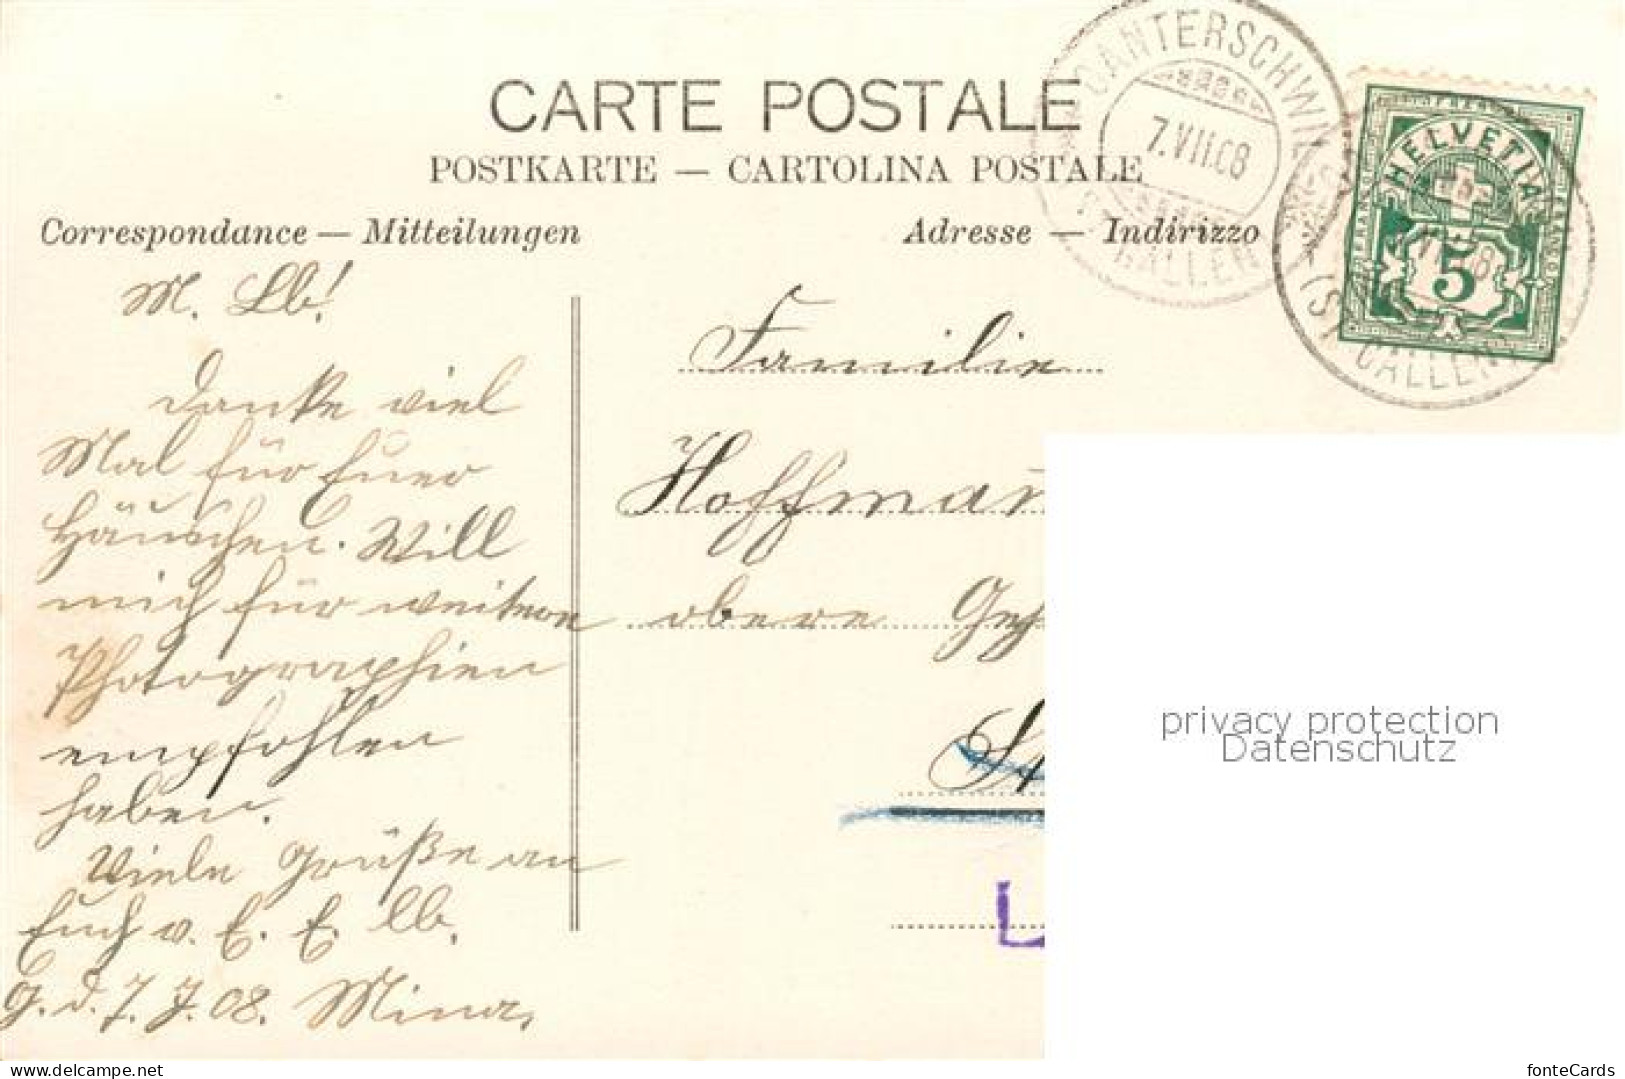 CARTE POSTALE
POSTKARTE — CARTOLINA POSTALE
Correspondance — Mitteilungen
Adresse — Indirizzo
GANTERSCHWIL
7.VII.08
(ST. GALLEN)
HELVETIA
FRANCO
5
(ST. GALLEN)
M. Lb!
Danke viel
Mal für Euer
Häuschen. Will
mich für weitere
Photographien
empfohlen
haben.
Viele Grüße an
Euch v. E. E. lb.
G. d. 7. 7. 08. Mina
Familie
Hoffman
obere
St
L
privacy protection
Datenschutz
delcampe.net
fonteCards